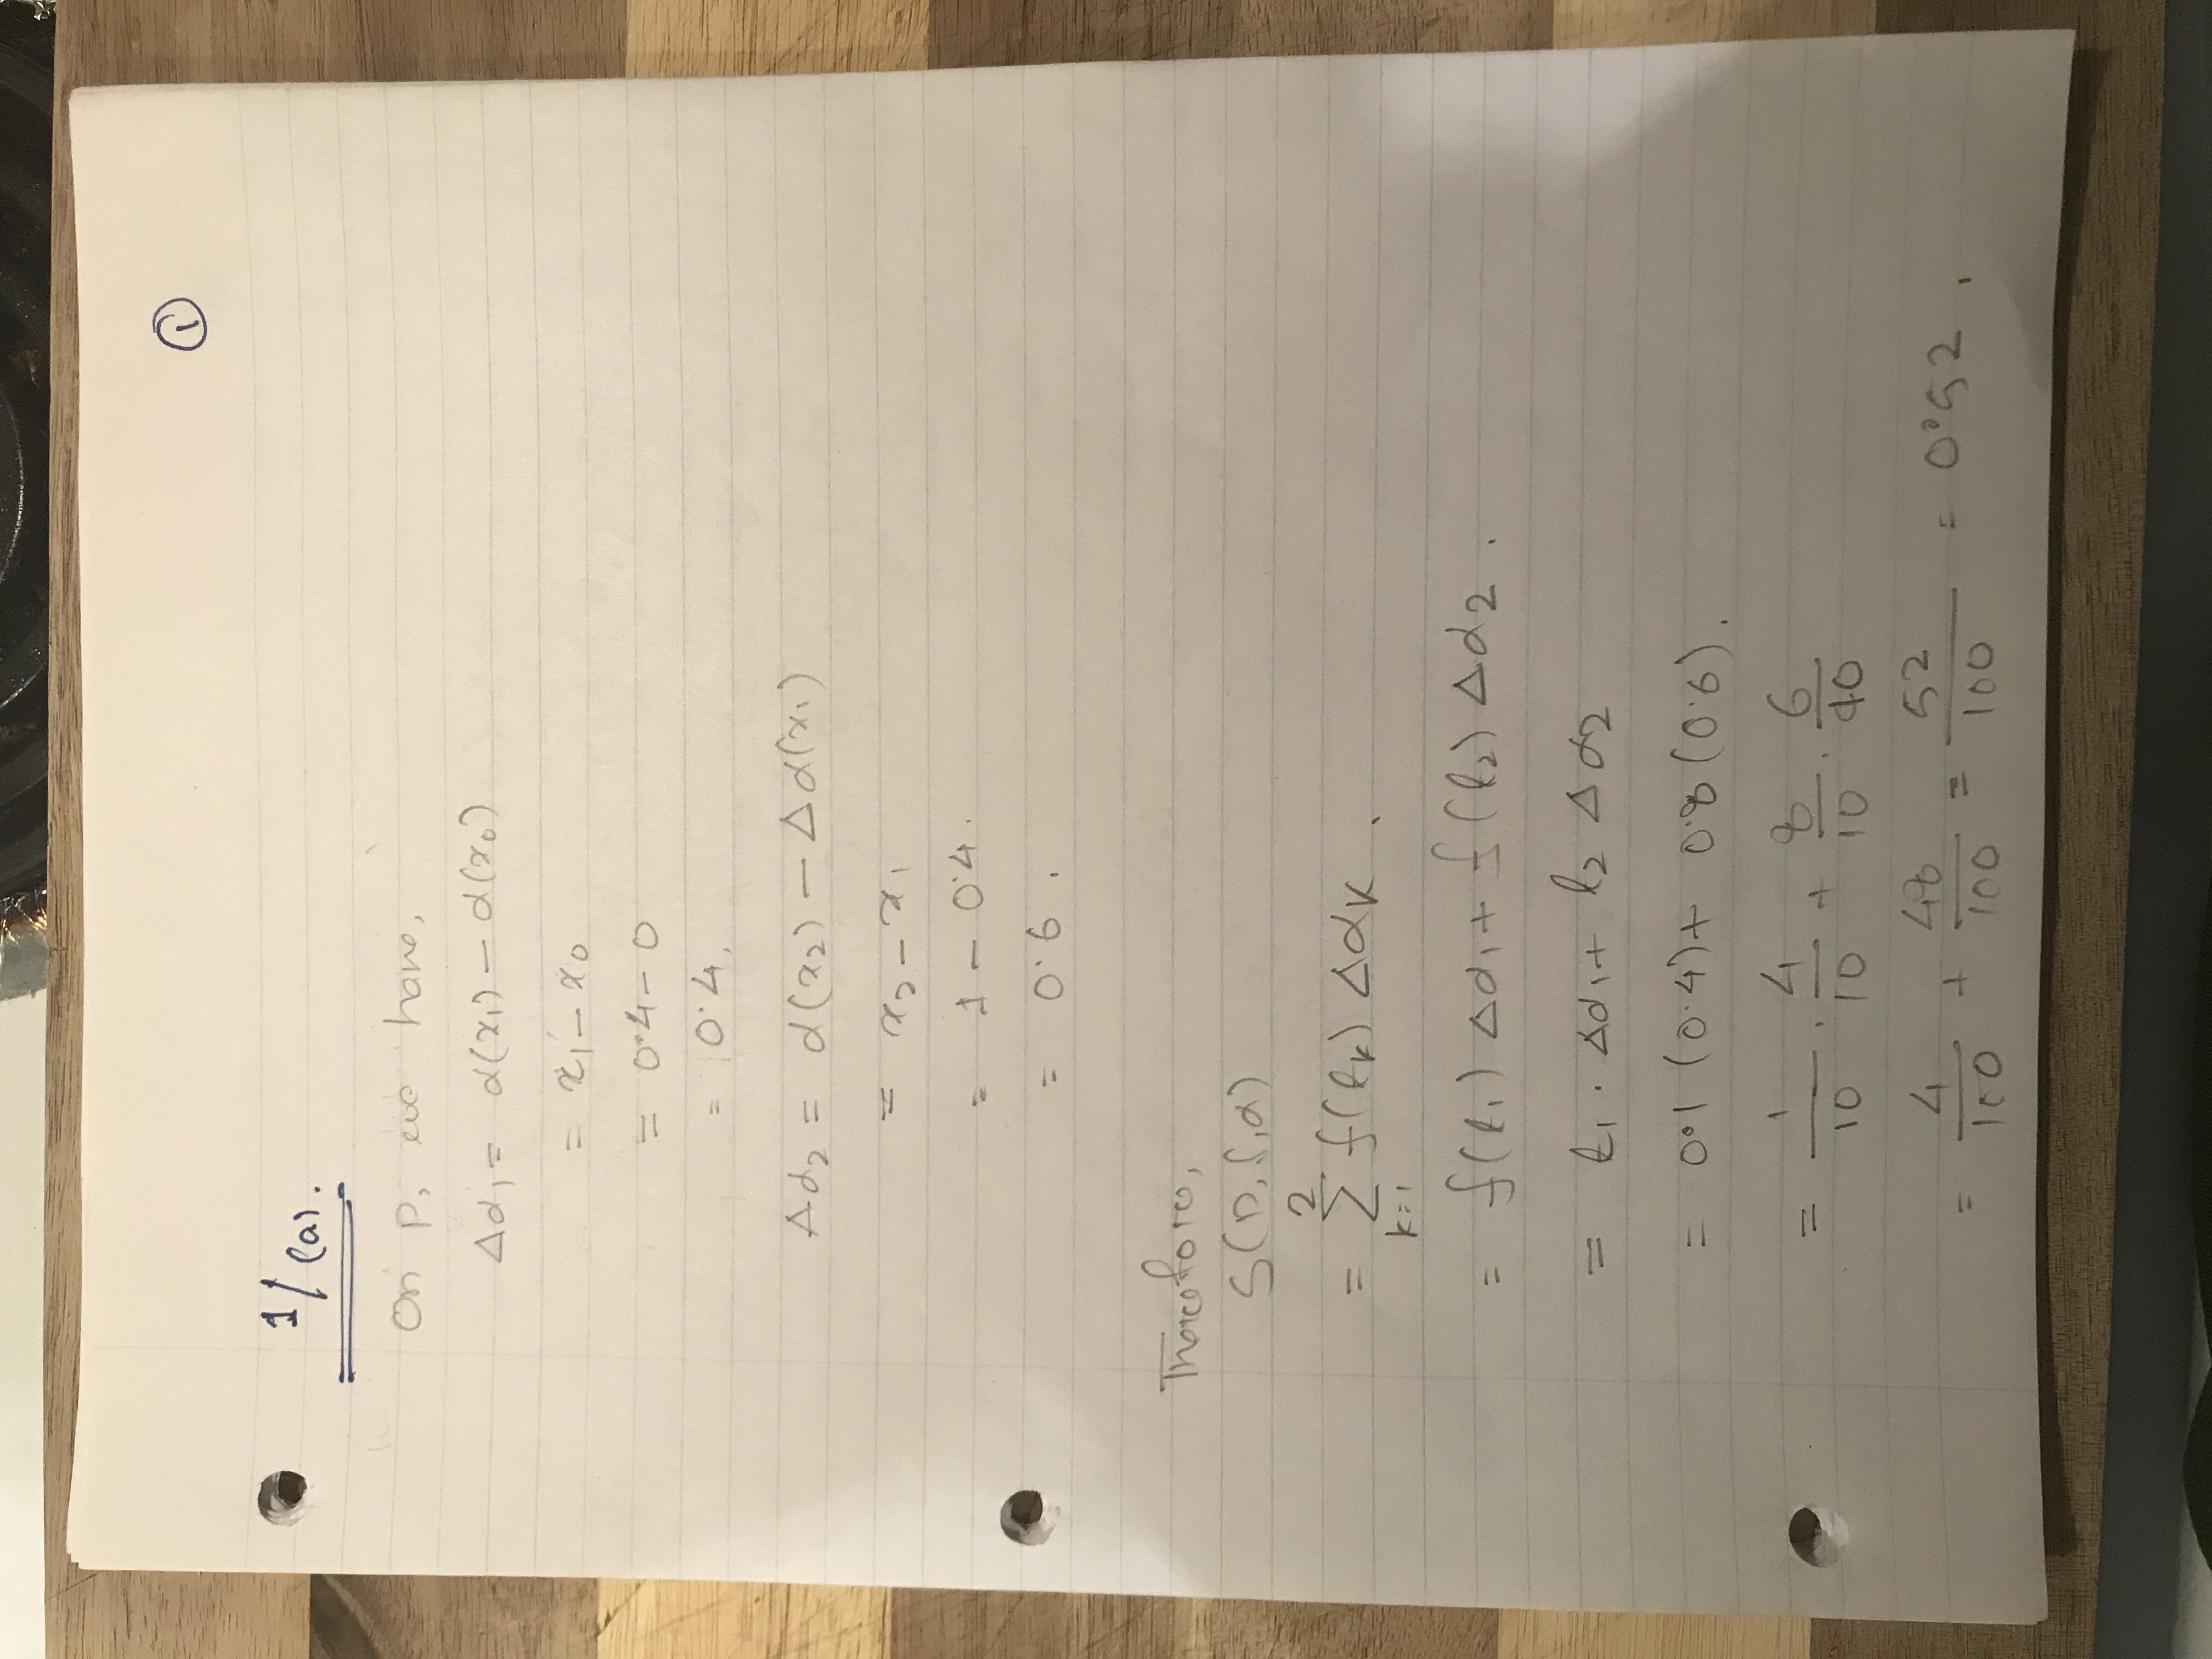 ①
1/(a).
On P, we have,
Δα₁ = α(x₁) − α(x₀)
= x₁ − x₀
= 0·4 − 0
= 0·4,
Δα₂ = α(x₂) − Δα(x₁)
= x₂ − x₁
= 1 − 0·4.
= 0·6 .
Therefore,
S(P, f, α)
= ∑_{k=1}^{2} f(t_k) Δα_k .
= f(t₁) Δα₁ + f(t₂) Δα₂ .
= t₁ · Δα₁ + t₂ Δα₂
= 0·1 (0·4) + 0·8 (0·6).
= 1/10 · 4/10 + 8/10 · 6/10
= 4/100 + 48/100 = 52/100 = 0·52 .